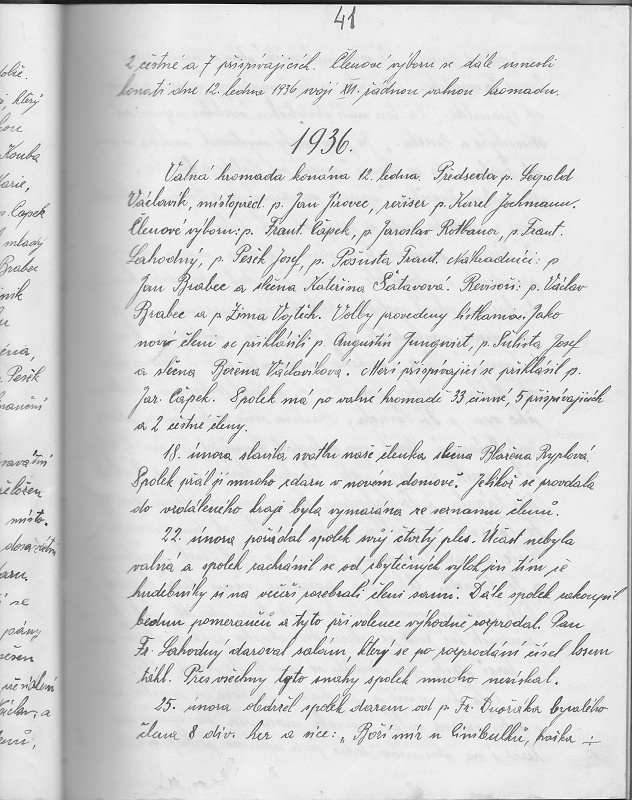 41
2 čestné a 7 přispívajících. Členové výboru se dále usnesli
konati dne 12. ledna 1936 svoji XVI. řádnou valnou hromadu.
1936.
Valná hromada konána 12. ledna. Předseda p. Leopold
Václavík, místopřed. p. Jan Jírovec, režiser p. Karel Jochmann.
Členové výboru: p. Frant. Čápek, p. Jaroslav Rotbauer, p. Frant.
Lahodný, p. Pešk Josef, p. Pošusta Frant. Náhradníci: p
Jan Brabec a slečna Kateřina Šatavová. Revisoři: p. Václav
Brabec a p Zíma Vojtěch. Volby provedeny lístkami. Jako
noví členi se přihlásili p. Augustin Jungvirt, p. Šulista Josef
a slečna Božena Václavíková. Mezi přispívající se přihlásil p.
Jar. Čápek. Spolek má po valné hromadě 33 činné, 5 přispívajících
a 2 čestné členy.
18. února slavila svatbu naše členka slečna Blažena Ryplová
Spolek přál jí mnoho zdaru v novém domově. Jelikož se provdala
do vzdáleného kraje byla vymazána ze seznamu členů.
22. února pořádal spolek svůj čtvrtý ples. Účast nebyla
valná a spolek zachránil se od zbytečných výloh jen tím že
hudebníky si na večeři rozebrali členi sami. Dále spolek zakoupil
bednu pomerančů a tyto při volence výhodně rozprodal. Pan
Fr. Lahodný daroval salám, který se po rozprodání čísel losem
táhl. Přes všechny tyto snahy spolek mnoho nezískal.
25. února obdržel spolek darem od p. Fr. Dvořáka bývalého
člena 8 div. her a sice: „Boží mír u Cibulků, fraška ÷
který
Kouba
Marie,
p. Čapek
mladý
Brabec
Pešk
místo.
se